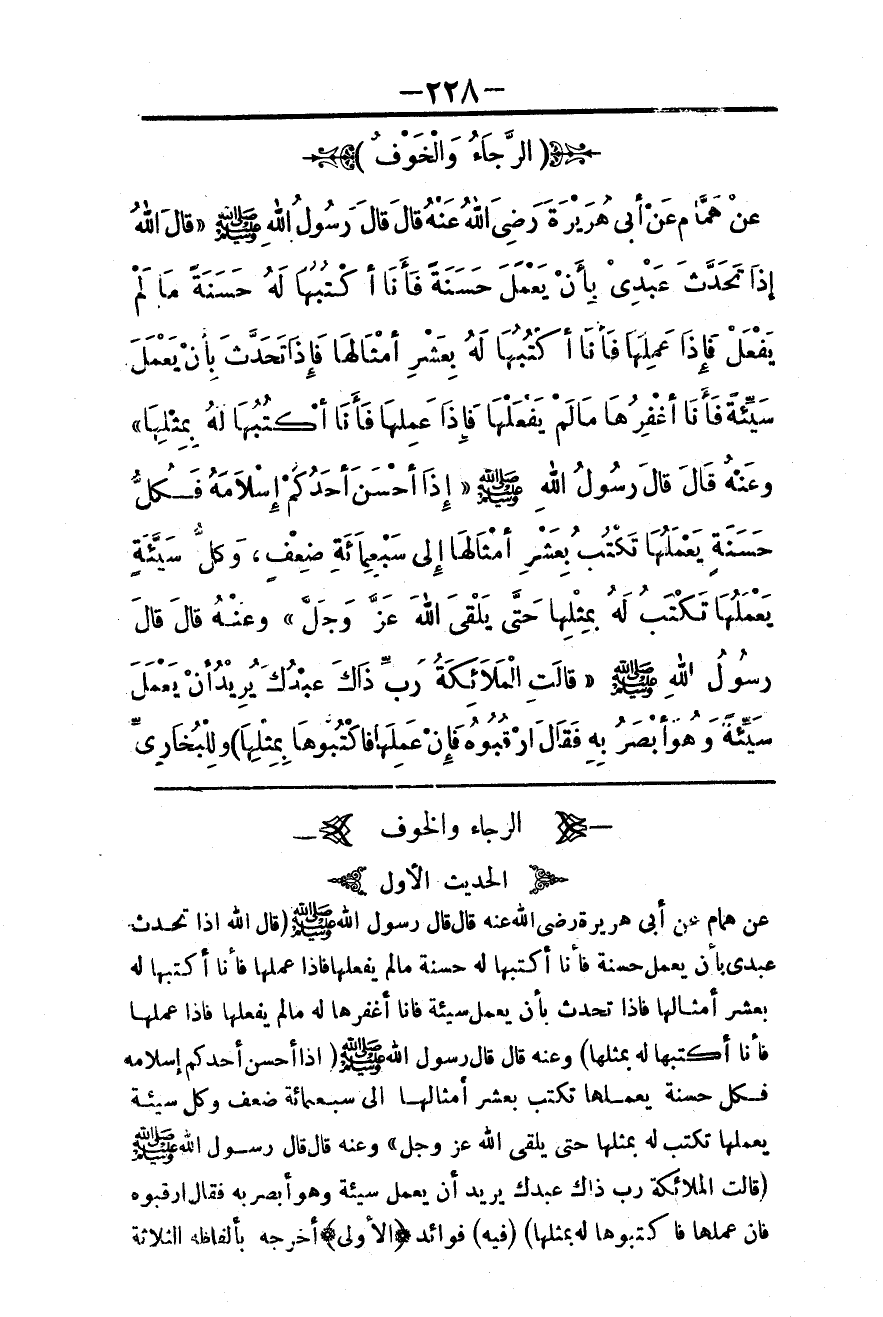 -٢٢٨-
(الرَّجَاءُ وَالْخَوْفُ)
عنْ هَمَّامٍ عَنْ أبى هُرَيْرَةَ رَضِىَ اللهُ عَنْهُ قالَ قَالَ رَسُولُ اللهِ ﷺ «قالَ اللهُ
إذَا تَحَدَّثَ عَبْدِىْ بِأَنْ يَعْمَلَ حَسَنَةً فَأَنَا أكْتُبُهَا لَهُ حَسَنَةً مَا لَمْ
يَفْعَلْ فَإِذَا عَمِلَهَا فَأَنَا أكْتُبُهَا لَهُ بِعَشْرِ أمْثَالِهَا فَإِذَا تَحَدَّثَ بِأَنْ يَعْمَلَ
سَيِّئَةً فَأَنَا أغْفِرُهَا مَالَمْ يَفْعَلْهَا فَإِذَا عَمِلهَا فَأَنَا أكْتُبُهَا لَهُ بِمِثْلِهَا»
وعَنْهُ قَالَ قالَ رَسُولُ اللهِ ﷺ «إذَا أحْسَنَ أحَدُكُمْ إسْلاَمَهُ فَكُلُّ
حَسَنَةٍ يَعْمَلُهَا تَكْتُبُ بِعَشْرِ أمْثَالِهَا إلى سَبْعِمِائَةِ ضِعْفٍ، وَكلُّ سَيِّئَةٍ
يَعْمَلُهَا تَكْتَبُ لَهُ بمِثْلِها حَتَّى يَلْقىَ اللهَ عَزَّ وَجَلَّ» وعنْهُ قالَ قالَ
رسُولُ اللهِ ﷺ «قالَتِ الْمَلاَئِكَةُ رَبِّ ذَاكَ عبْدُكَ يُرِيْدُ أنْ يَعْمَلَ
سَيِّئَةً وَهُوَ أبْصَرُ بِهِ فَقَالَ ارْقبُوُه فَإِنْ عَمِلَهَا فَاكْتُبُوهَا بِمِثْلِهَا)وِللْبُخَارِىِّ
الرجاء والخوف
الحديث الأول
عن همام عن أبى هريرة رضى الله عنه قال قال رسول الله ﷺ (قال الله اذا تحدث
عبدى بأن يعمل حسنة فأنا أكتبها له حسنة مالم يفعلها فاذا عملها فأنا أكتبها له
بعشر أمثالها فاذا تحدث بأن يعمل سيئة فانا أغفرها له مالم يفعلها فاذا عملها
فأنا أكتبها له بمثلها) وعنه قال قال رسول الله ﷺ (اذا أحسن أحدكم إسلامه
فكل حسنة يعملها تكتب بعشر أمثالها الى سبعمائة ضعف وكل سيئة
يعملها تكتب له بمثلها حتى يلقى الله عز وجل» وعنه قال قال رسول الله ﷺ
(قالت الملائكة رب ذاك عبدك يريد أن يعمل سيئة وهو أبصر به فقال ارقبوه
فان عملها فاكتبوها له بمثلها) (فيه) فوائد ﴿الأولى﴾ أخرجه بألفاظه الثلاثة